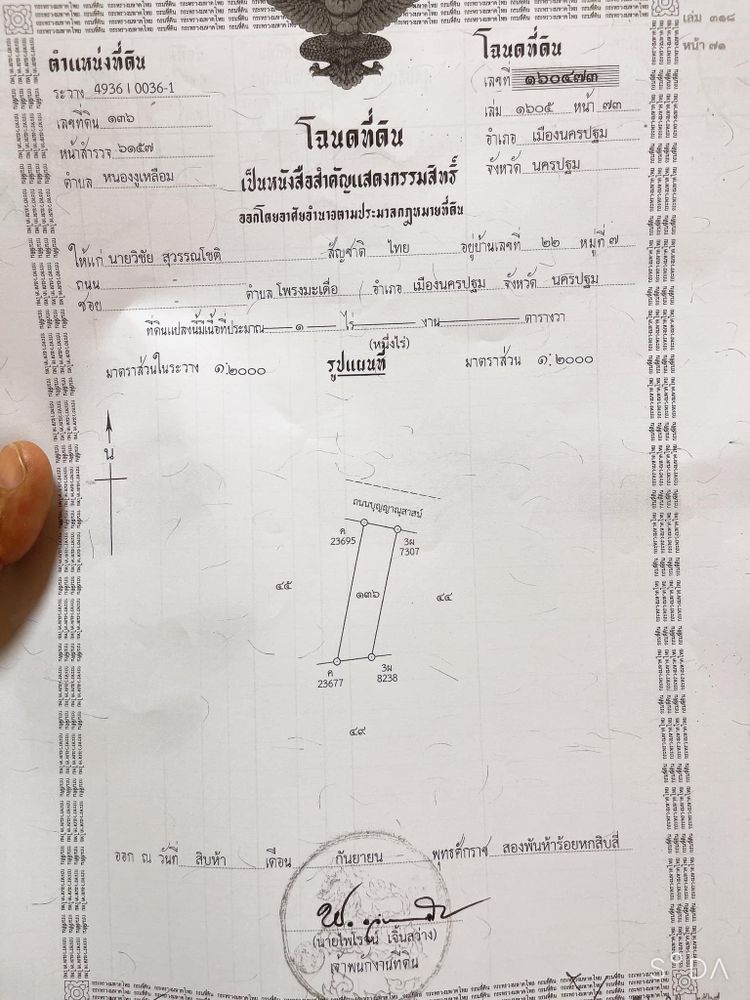 เล่ม ๓๑๘
หน้า ๗๑
ตำแหน่งที่ดิน
ระวาง 4936 I 0036-1
เลขที่ดิน ๑๓๖
หน้าสำรวจ ๖๑๕๗
ตำบล หนองงูเหลือม
โฉนดที่ดิน
เลขที่ ๑๖๐๔๗๓
เล่ม ๑๖๐๕ หน้า ๗๓
อำเภอ เมืองนครปฐม
จังหวัด นครปฐม
โฉนดที่ดิน
เป็นหนังสือสำคัญแสดงกรรมสิทธิ์
ออกโดยอาศัยอำนาจตามประมวลกฎหมายที่ดิน
ให้แก่ นายวิชัย สุวรรณโชติ สัญชาติ ไทย อยู่บ้านเลขที่ ๒๒ หมู่ที่ ๗
ถนน -
ซอย - ตำบล โพรงมะเดื่อ อำเภอ เมืองนครปฐม จังหวัด นครปฐม
ที่ดินแปลงนี้มีเนื้อที่ประมาณ ๑ ไร่ งาน ตารางวา
(หนึ่งไร่)
มาตราส่วนในระวาง ๑:๒๐๐๐ รูปแผนที่ มาตราส่วน ๑:๒๐๐๐
น
ถนนบุญญาณุสาสน์
ค 23695
3ผ 7307
๔๕ ๑๓๖ ๔๔
ค 23677
3ผ 8238
๔๙
ออก ณ วันที่ สิบห้า เดือน กันยายน พุทธศักราช สองพันห้าร้อยหกสิบสี่
(นายไพโรจน์ เจิ้นสว่าง)
เจ้าพนักงานที่ดิน